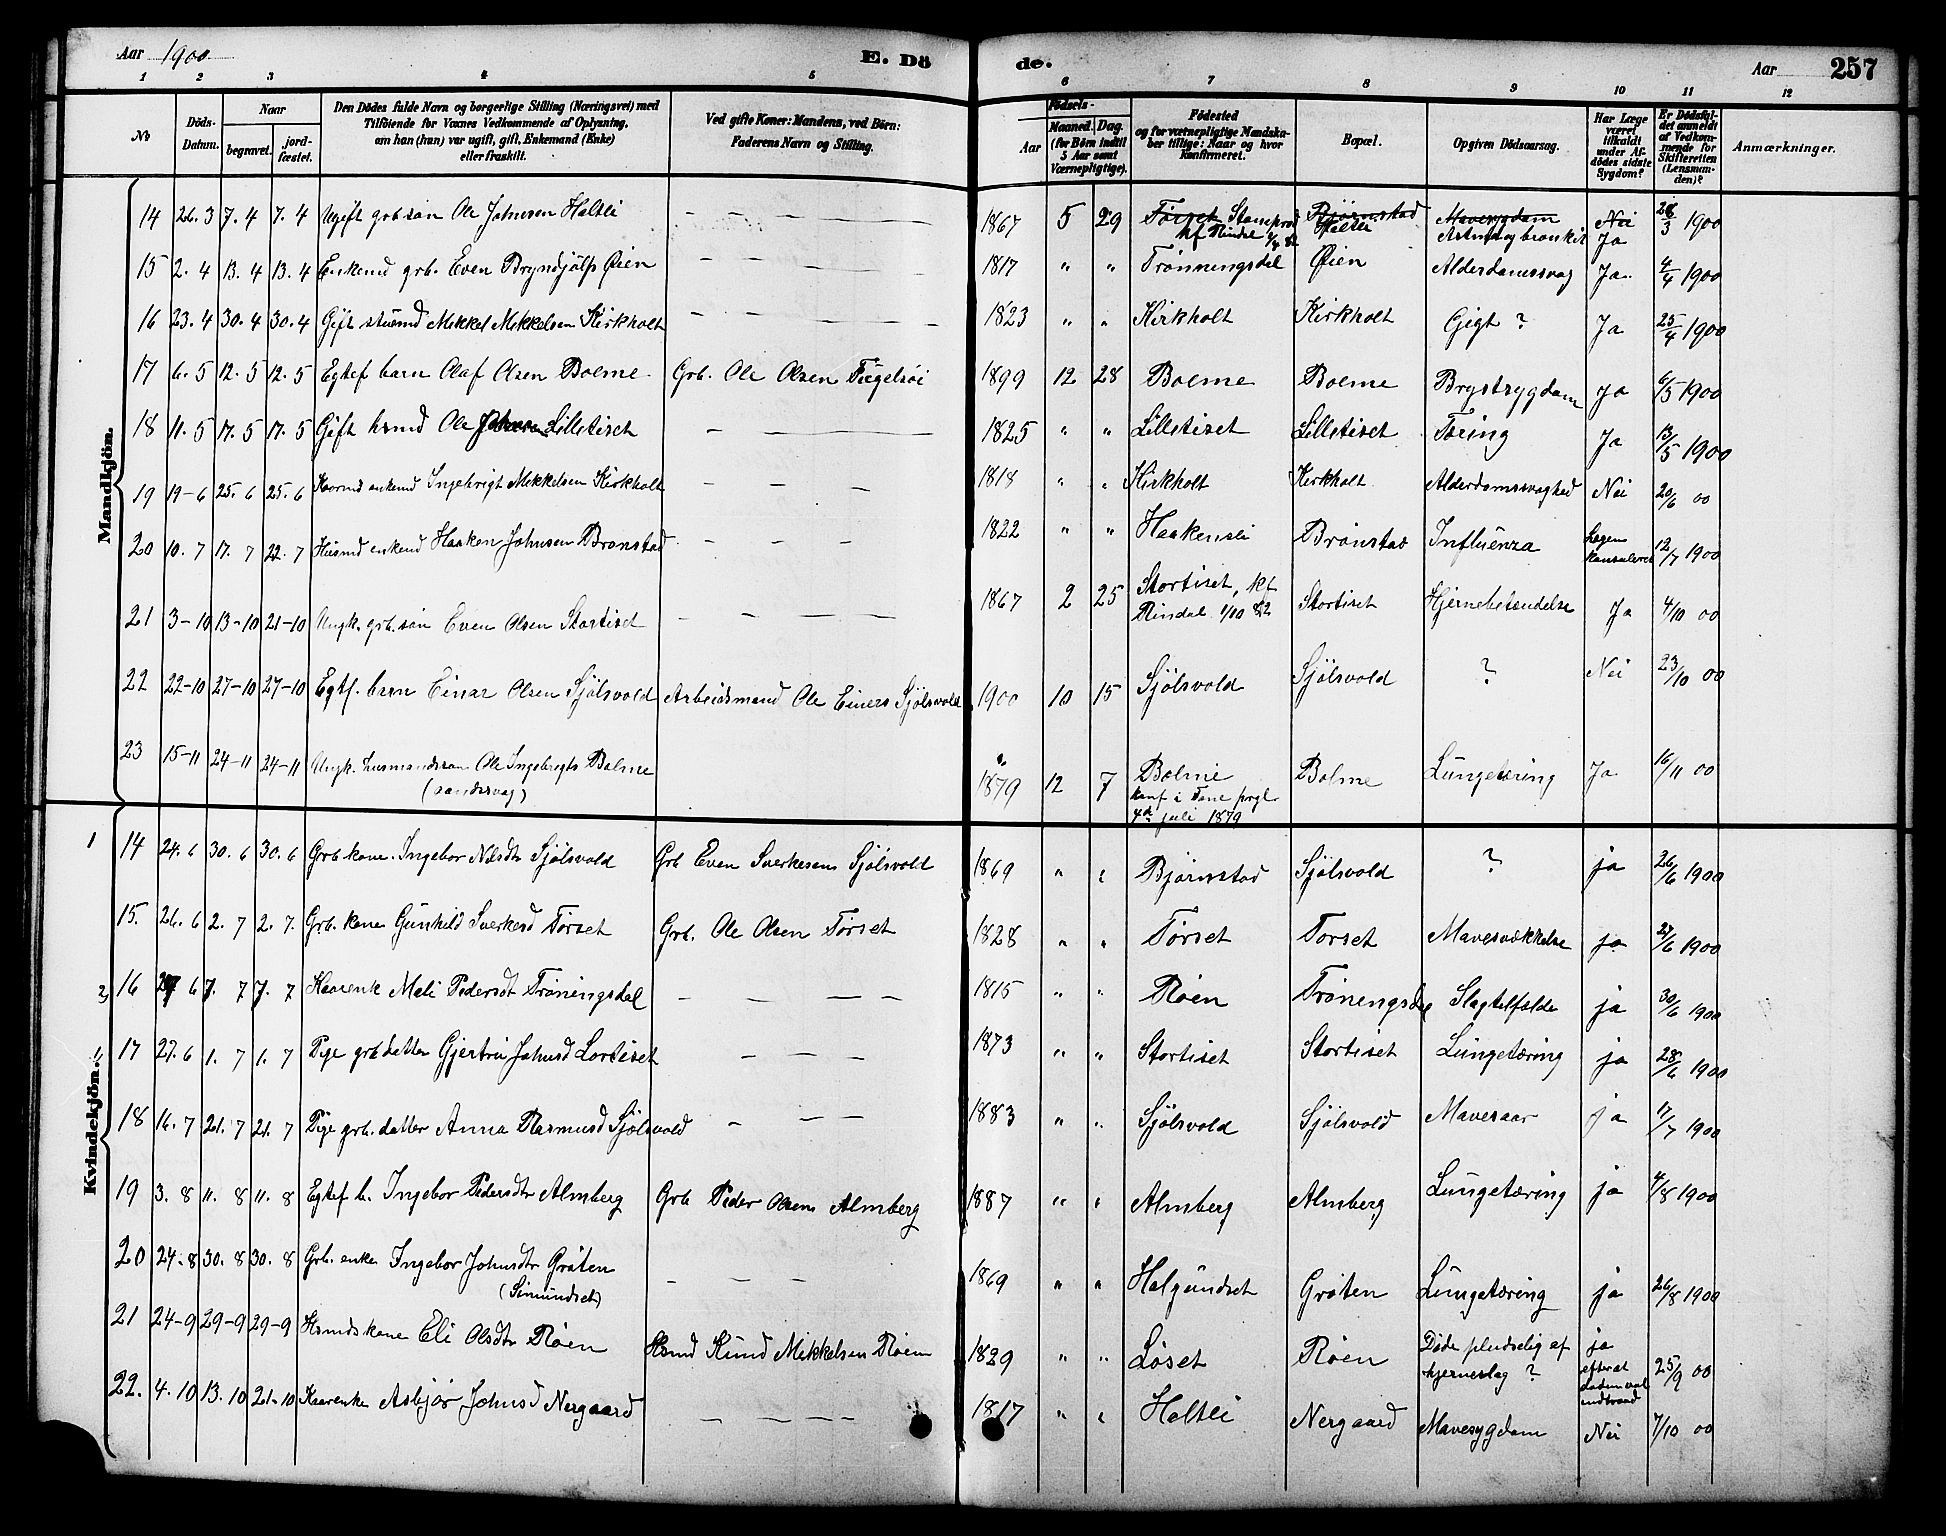 Aar 1900
E. Dö
de.
Aar
257
1 2 3 4 5 6 7 8 9 10 11 12
No
Döds-
Datum.
Naar
begravet.
jord-
fæstet.
Den Dödes fulde Navn og borgerlige Stilling (Næringsvei) med
Tilföiende for Voxnes Vedkommende af Oplysning,
om han (hun) var ugift, gift, Enkemand (Enke)
eller fraskilt.
Ved gifte Koner: Mandens, ved Börn:
Faderens Navn og Stilling.
Födsels-
Aar
Maaned. Dag.
(for Börn indtil
5 Aar samt
Værnepligtige).
Födested
og for værnepligtige Mandska-
ber tillige: Naar og hvor
konfirmeret.
Bopæl.
Opgiven Dödsaarsag.
Har Læge
været
tilkaldt
under Af-
dödes sidste
Sygdom?
Er Dödsfal-
det anmeldt
af Vedkom-
mende for
Skifteretten
(Lensman-
den)?
Anmærkninger.
Mandkjön.
14 26. 3 7. 4 7. 4 Ugift grb.søn Ole Johnsen Haltli — — — — — 1867 5 29 Tørset Bjørnstad Mavesygdom Nei 28/3 1900
kf Rindal Haltli Ja
15 2. 4 13. 4 13. 4 Enkemd grb. Even Bryndjulfs Øien — — — — — 1817 " " Trønningsdal Øien Ja. 4/4 1900
16 23. 4 30. 4 30. 4 Gift Mikkel Mikkelsen Kirkholt — — — — — 1823 " " Kirkholt Kirkholt Gigt ? Ja 25/4 1900
17 6. 5 12. 5 12. 5 Egtef barn Olaf Olsen Bolme Grb. Ole Olsen 1899 12 28 Bolme Bolme Brystsygdom Ja 6/5 1900
18 11. 5 17. 5 17. 5 Gift hsmd Ole Lilletiset — — — — 1825 " " Lilletiset Lilletiset Tæring Ja 13/5 1900
19 19-6 25. 6 25. 6 enkemd Ingebrigt Mikkelsen Kirkholt — — — 1818 " " Kirkholt Kirkholt Alderdomssvaghed Nei 20/6 00
20 10. 7 17. 7 22. 7 Husmd enkemd Haaken Johnsen Brønstad — — — 1822 " " Haakensli Brønstad Influenza Lægen 12/7 1900
konsuleret
21 3-10 13-10 21-10 Ungk. grb. søn Even Olsen Stortiset — — — — 1867 2 25 Stortiset, kf Stortiset Hjernebetændelse Ja 4/10 00
Rindal 1/10 82
22 22-10 27-10 27-10 Egtf. barn Einar Olsen Sjølsvold Arbeidsmand Ole Einers Sjølsvold 1900 10 15 Sjølsvold Sjølsvold ? Nei 23/10 00
23 15-11 24-11 24-11 Ungk. husmandssøn Ole Ingebrigts Bolme 1879 12 7 Bolme Bolme Lungetæring Ja 16/11 00
(sandssvag)
4de juli 1879
Kvindekjön.
1 14 24. 6 30. 6 30. 6 Grb kone Ingebor Nilsdtr Sjølsvold Grb Even Sverkesens Sjølsvold 1869 " " Bjørnstad Sjølsvold ? ja 26/6 1900
15. 26. 6 2. 7 2. 7. Grb. kone Gunhild Sverkesd Tørset Grb. Ole Olsen Tørset 1828 " " Tørset Torset Mavesvækkelse ja 27/6 1900
2, 16 6 7. 7 7. 7 Kaarenk Mali Pedersdt Trøningsdal — — — — 1815 " " Røen Trønengsdal Slagtilfælde ja 30/6 1900
17 27. 6 1. 7 1. 7 Pige grb datter Gjertru Johnsd — — — 1873 " " Stortiset Stortiset Lungetæring ja 28/6 1900
18 16. 7 21. 7 21. 7 Pige grb. datter Anna Rasmusd Sjølsvold — — — 1883 " " Sjølsvold Sjølsvold Mavesaar ja 17/7 1900
19 3. 8 11. 8 11. 8 Egtef b. Ingebor Pedersdtr Almberg Grb Peder Olsens Almberg 1887 " " Almberg Almberg Lungetæring ja 4/8 1900
20 24-8 30. 8 30. 8 Grb. enke Ingebor Johnsdtr Grøten — — — 1869 " " Helgundset Grøten Lungetæring ja 26/8 1900
(Simundset)
21 24-9 29-9 29-9 Hsmds kone Eli Olsdtr Røen Hsmd Knud Mikkelsen Røen 1829 " " Løset Røen Døde pludselig af ja 25/9 00
hjerneslag ? efterat
døden var
indtraad
22. 4. 10 13. 10 21-10 Kaarenke Asbjør Johnsd Nergaard — — — — 1817 " " Haltli Nergaard Mavesygdom Nei 7/10 00